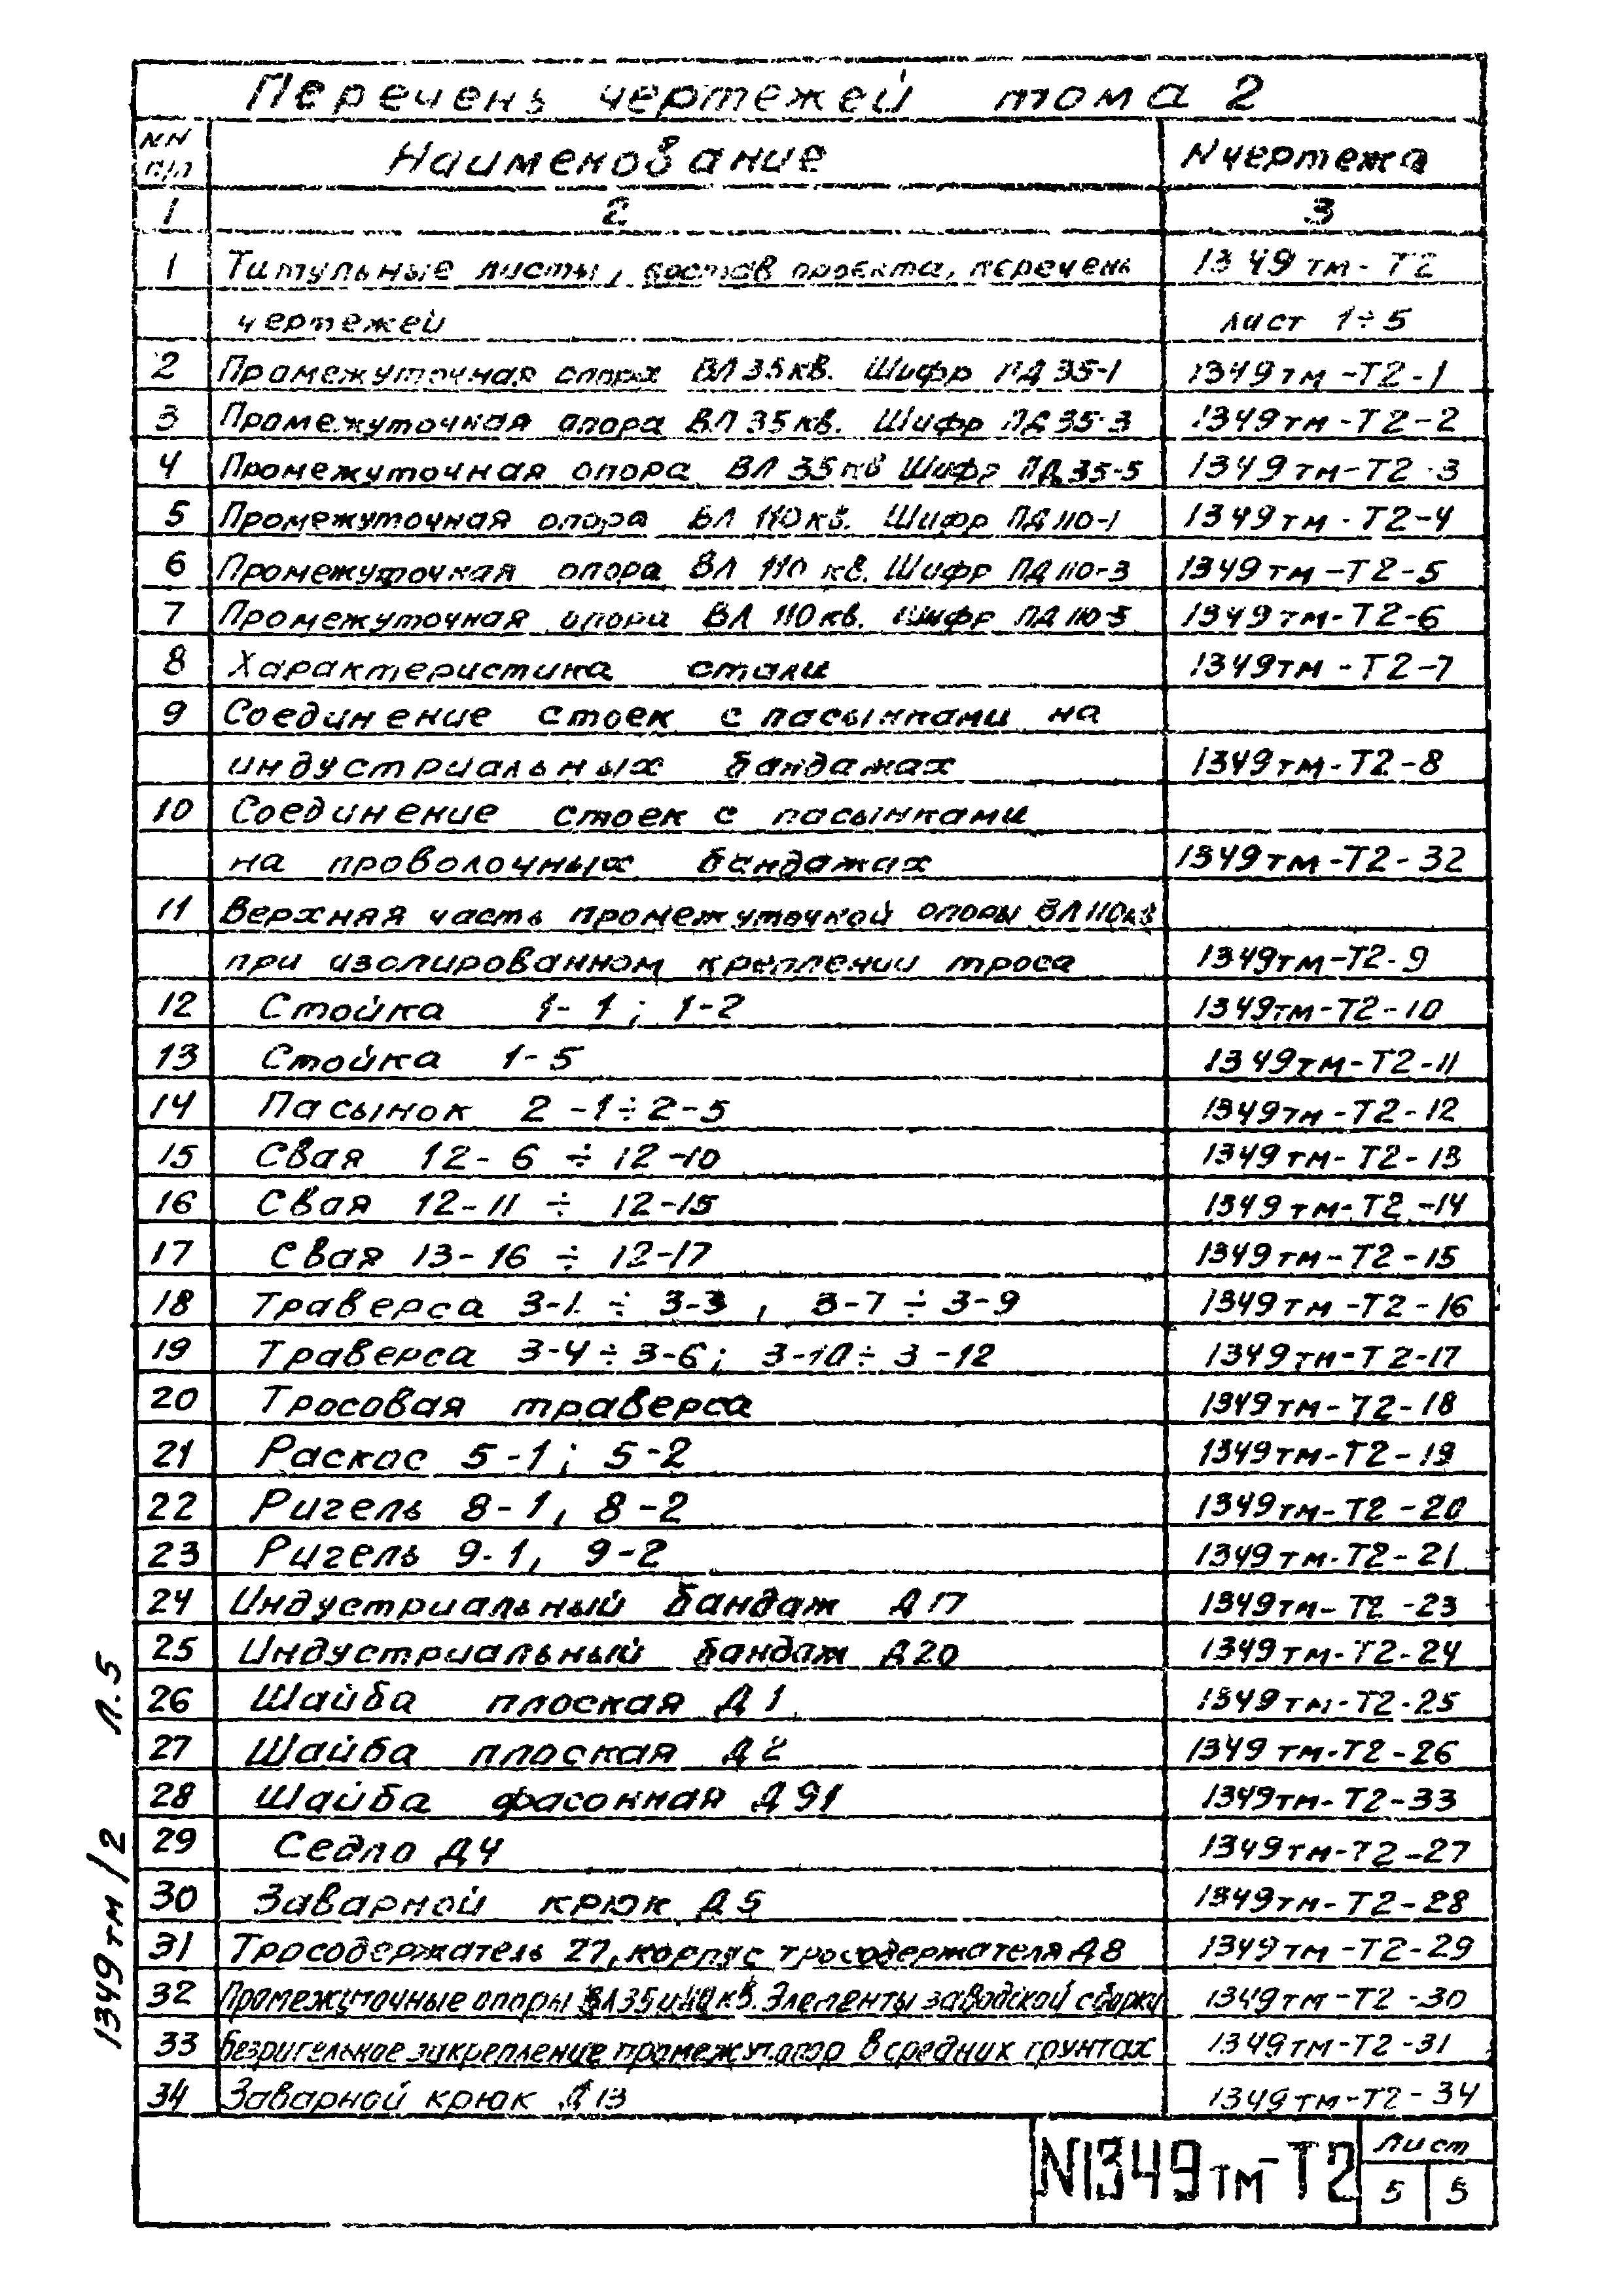 Перечень чертежей тома 2
NN п/п Наименование N чертежа
1 2 3
1 Титульные листы, состав проекта, перечень 1349тм-Т2
чертежей лист 1÷5
2 Промежуточная опора ВЛ 35кв. Шифр ПД 35-1 1349тм-Т2-1
3 Промежуточная опора ВЛ 35кв. Шифр ПД 35-3 1349тм-Т2-2
4 Промежуточная опора ВЛ 35кв Шифр ПД 35-5 1349тм-Т2-3
5 Промежуточная опора ВЛ 110кв. Шифр ПД 110-1 1349тм-Т2-4
6 Промежуточная опора ВЛ 110 кв. Шифр ПД 110-3 1349тм-Т2-5
7 Промежуточная опора ВЛ 110кв. Шифр ПД 110-5 1349тм-Т2-6
8 Характеристика стали 1349тм-Т2-7
9 Соединение стоек с пасынками на
индустриальных бандажах 1349тм-Т2-8
10 Соединение стоек с пасынками
на проволочных бандажах 1349тм-Т2-32
11 Верхняя часть промежуточной опоры ВЛ 110кв
при изолированном креплении троса 1349тм-Т2-9
12 Стойка 1-1; 1-2 1349тм-Т2-10
13 Стойка 1-5 1349тм-Т2-11
14 Пасынок 2-1÷2-5 1349тм-Т2-12
15 Свая 12-6 ÷ 12-10 1349тм-Т2-13
16 Свая 12-11 ÷ 12-15 1349тм-Т2-14
17 Свая 13-16 ÷ 12-17 1349тм-Т2-15
18 Траверса 3-1 ÷ 3-3, 3-7 ÷ 3-9 1349тм-Т2-16
19 Траверса 3-4÷3-6; 3-10÷3-12 1349тм-Т2-17
20 Тросовая траверса 1349тм-Т2-18
21 Раскос 5-1; 5-2 1349тм-Т2-19
22 Ригель 8-1, 8-2 1349тм-Т2-20
23 Ригель 9-1, 9-2 1349тм-Т2-21
24 Индустриальный бандаж Д17 1349тм-Т2-23
25 Индустриальный бандаж Д20 1349тм-Т2-24
26 Шайба плоская Д1 1349тм-Т2-25
27 Шайба плоская Д2 1349тм-Т2-26
28 Шайба фасонная Д91 1349тм-Т2-33
29 Седло Д4 1349тм-Т2-27
30 Заварной крюк Д5 1349тм-Т2-28
31 Тросодержатель 27, корпус тросодержателя Д8 1349тм-Т2-29
32 Промежуточные опоры ВЛ 35 и 110 кВ. Элементы заводской сборки 1349тм-Т2-30
33 Безригельное закрепление промежут.опор в средних грунтах 1349тм-Т2-31
34 Заварной крюк Д13 1349тм-Т2-34
N1349тм-Т2 Лист
5 5
1349тм/2 Л.5